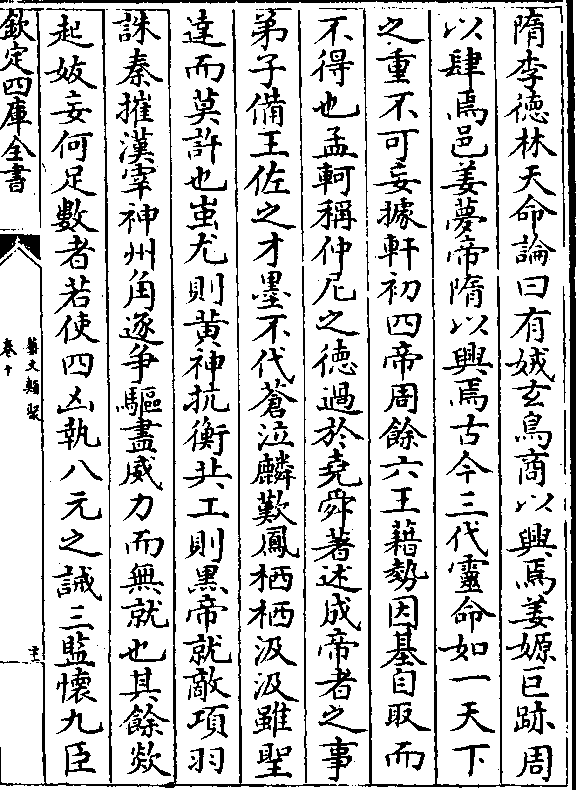 隋李德林天命論曰有娀玄鳥商以興焉姜嫄巨跡周
以肆焉邑姜夢帝隋以興焉古今三代靈命如一天下
之重不可妄據軒初四帝周餘六王藉勢因基自取而
不得也孟軻稱仲尼之德過於堯舜著述成帝者之事
弟子備王佐之才墨不代蒼泣麟歎鳳栖栖汲汲雖聖
達而莫許也蚩尤則黄神抗衡共工則黑帝就敵項羽
誅秦摧漢宰神州角逐爭驅盡威力而無就也其餘歘
起妖妄何足數者若使四凶執八元之誠三監懷九臣
欽定四庫全書
藝文類聚
卷十